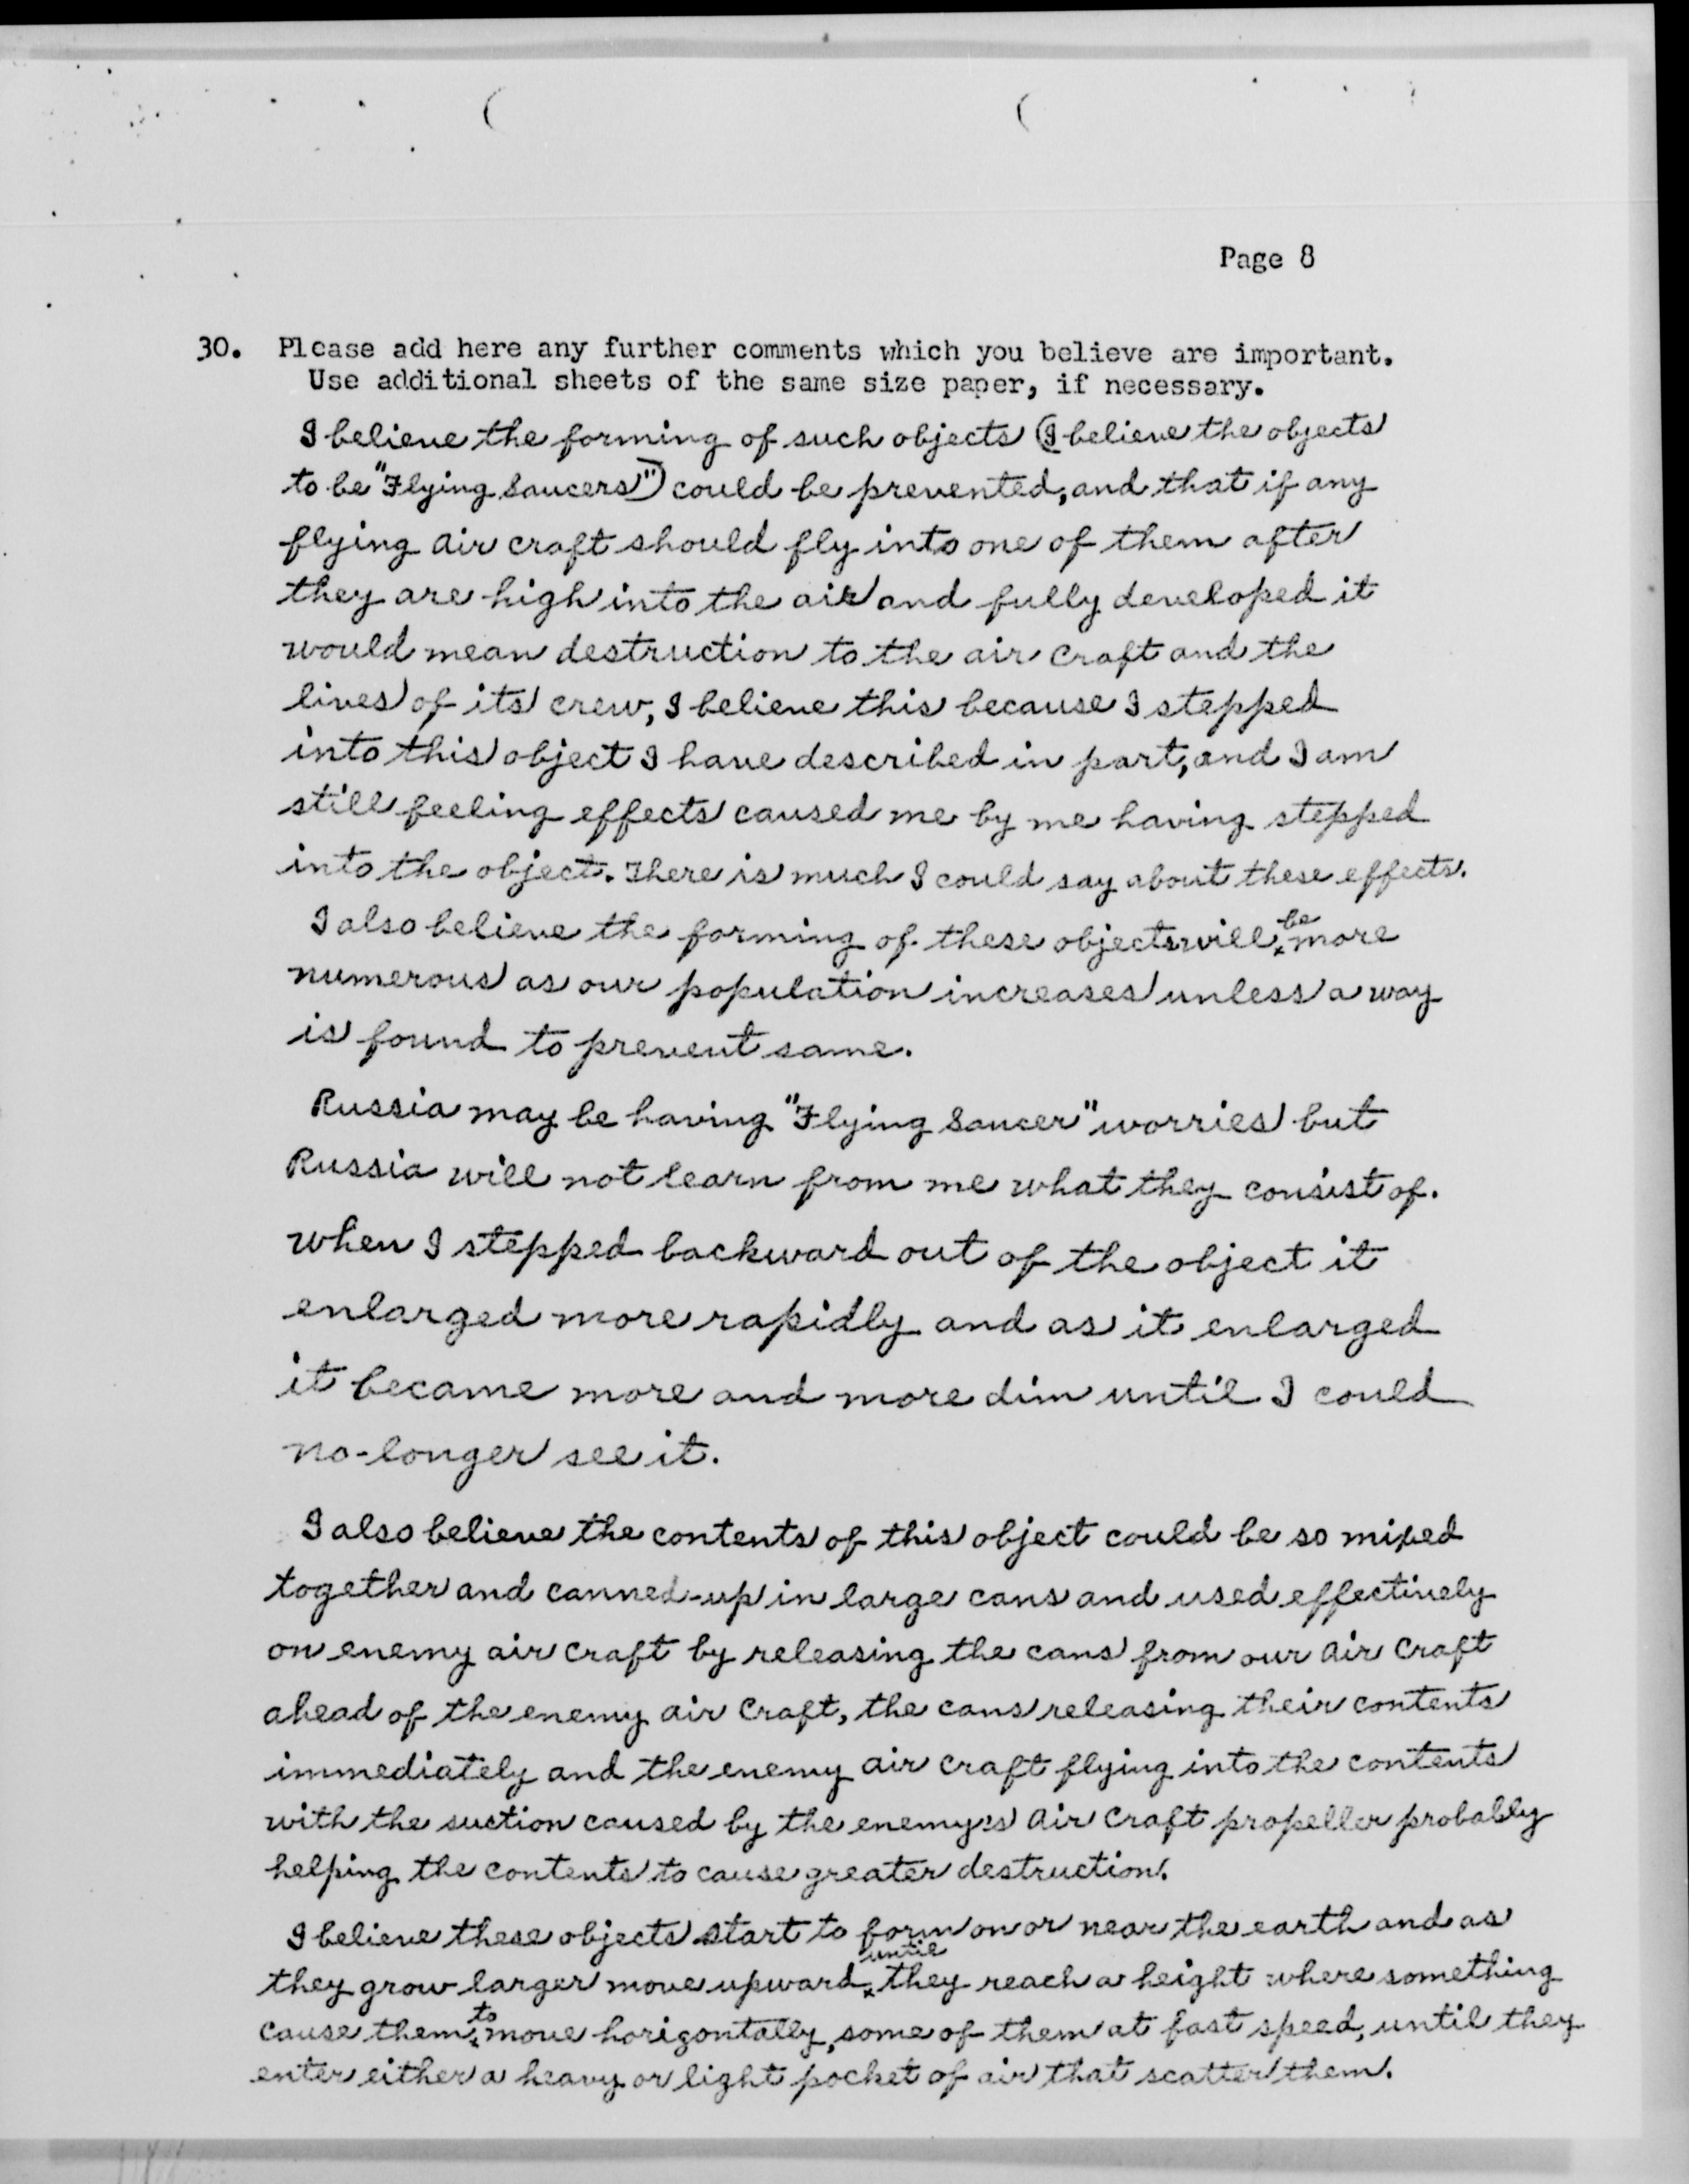 Page 8
30. Please add here any further comments which you believe are important.
Use additional sheets of the same size paper, if necessary.
I believe the forming of such objects (I believe the objects
to be "Flying Saucers") could be prevented, and that if any
flying air craft should fly into one of them after
they are high into the air and fully developed it
would mean destruction to the air craft and the
lives of its crew, I believe this because I stepped
into this object I have described in part, and I am
still feeling effects caused me by me having stepped
into the object. There is much I could say about these effects.
I also believe the forming of these objects will be more
numerous as our population increases unless a way
is found to prevent same.
Russia may be having "Flying Saucer" worries but
Russia will not learn from me what they consist of.
when I stepped backward out of the object it
enlarged more rapidly and as it enlarged
it became more and more dim until I could
no-longer see it.
I also believe the contents of this object could be so mixed
together and canned-up in large cans and used effectively
on enemy air craft by releasing the cans from our air craft
ahead of the enemy air craft, the cans releasing their contents
immediately and the enemy air craft flying into the contents
with the suction caused by the enemy's air craft propeller probably
helping the contents to cause greater destruction.
I believe these objects start to form on or near the earth and as
they grow larger move upward until they reach a height where something
cause them to move horizontally, some of them at fast speed, until they
enter either a heavy or light pocket of air that scatter them.